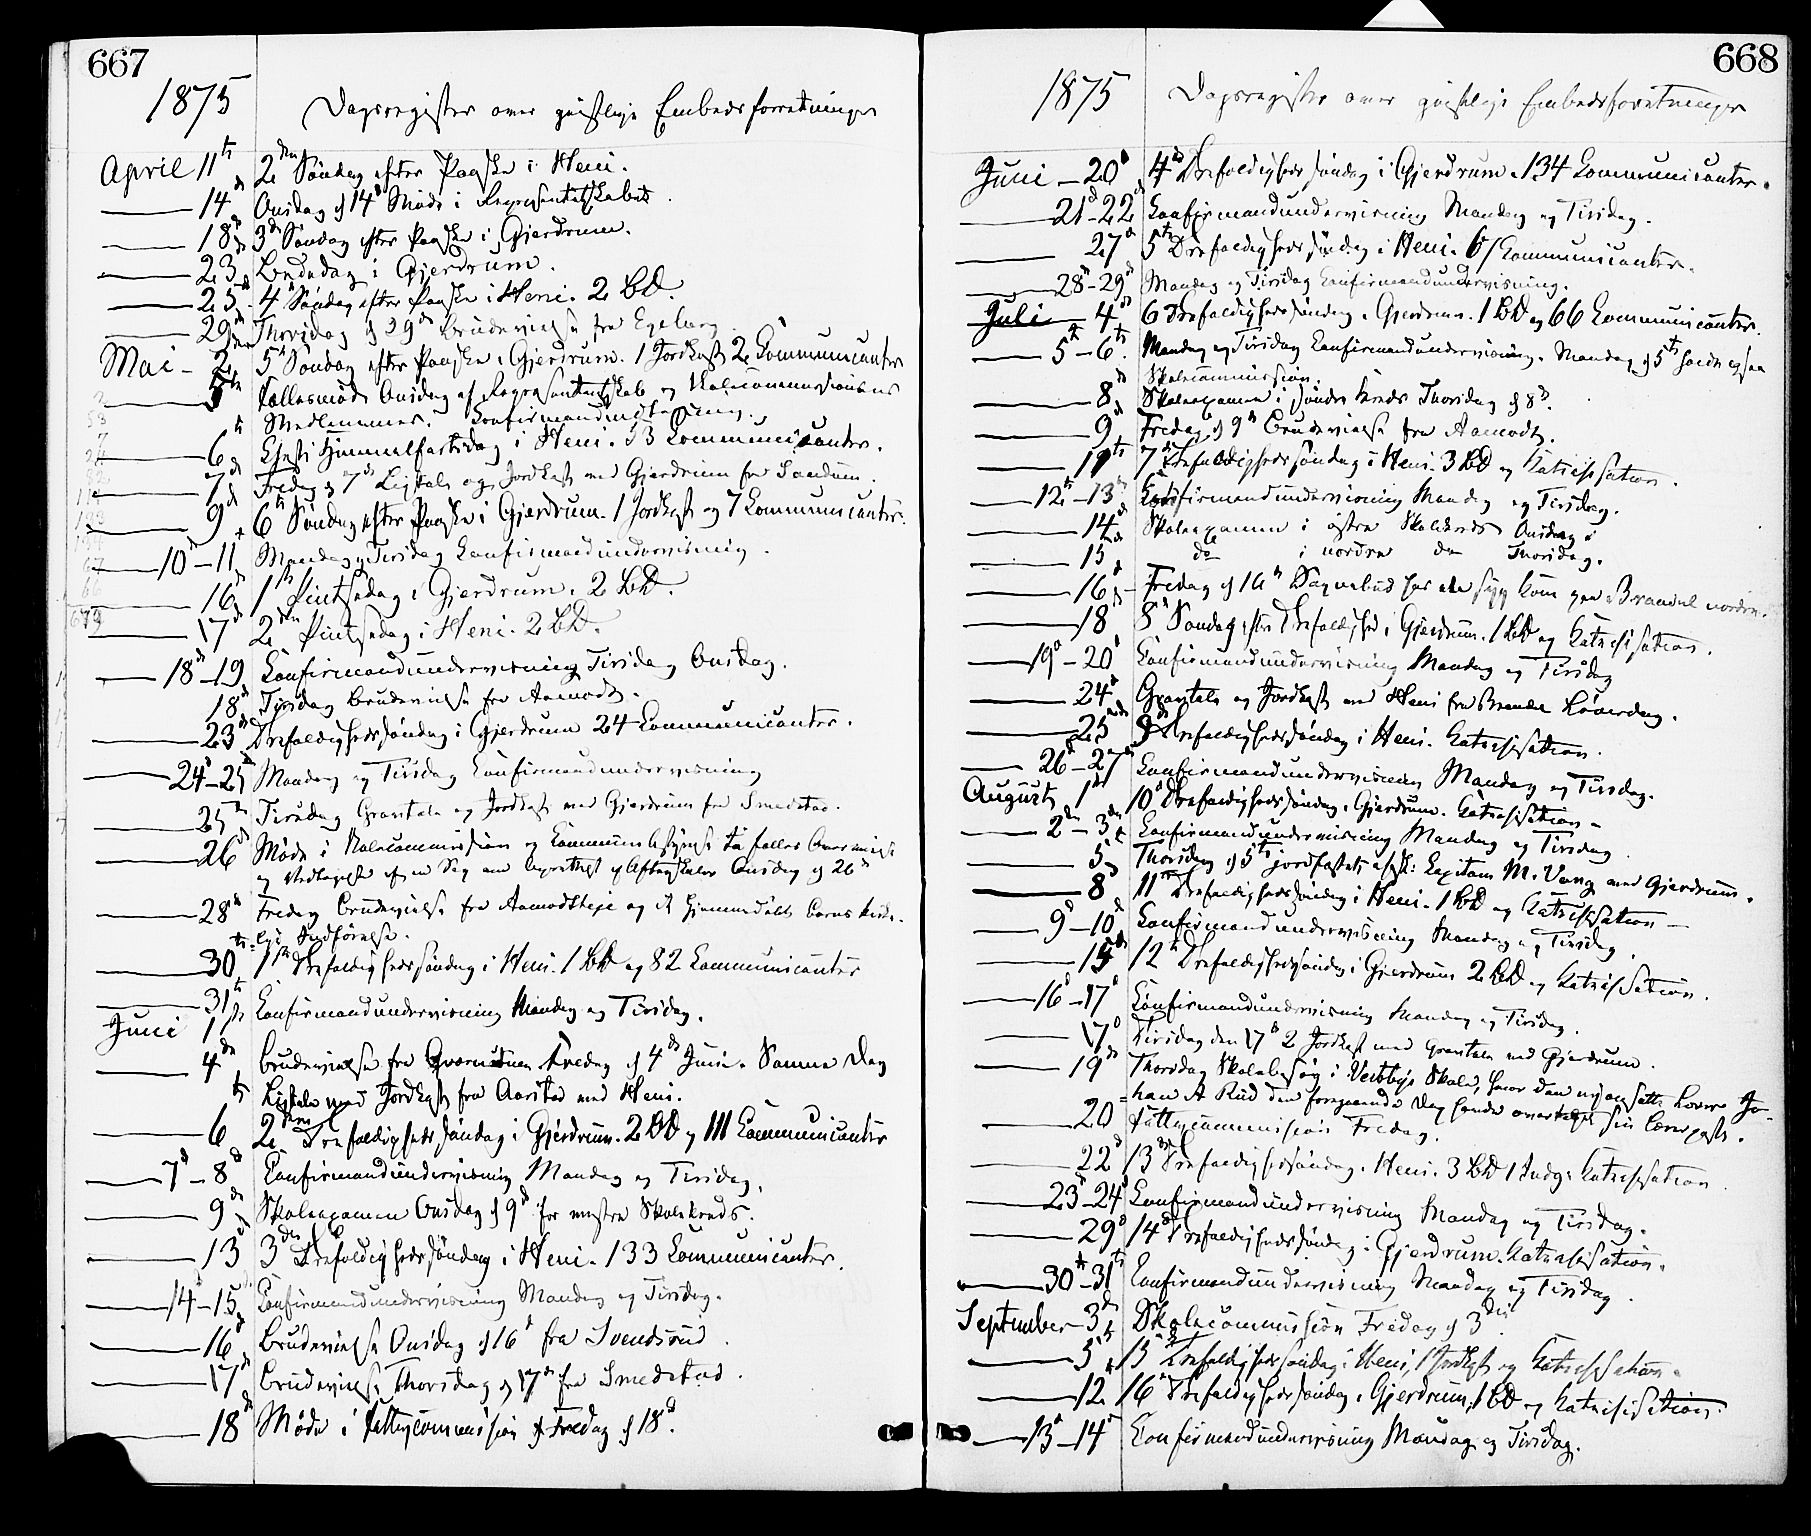 667
1875 Dagsregister over geistlige Embedsforretninger
April 11te 2den Søndag efter Paaske i Heni.
14d Onsdag d 14d Møde i Repræsentskabet.
18d 3d Søndag efter Paaske i Gjerdrum.
23 Bededag i Gjerdrum.
25 4d Søndag efter Paaske i Heni. 2 BD.
29d Thorsdag d 29de Brudevielse fra Egeberg.
Mai 2den 5t Søndag efter Paaske i Gjerdrum. 1 Jordkast 2 Communicanter
5te Fællesmøde Onsdag af Repræsentantskab og Skolecommissionens
Medlemmer. Confirmandmodtagning.
6t Christi Himmelfartsdag i Heni. 53 Communicanter.
7d Fredag d 7de Ligtale og Jordkast ved Gjerdrum fra Sandum.
9d 6te Søndag efter Paaske i Gjerdrum. 1 Jordkast og 7 Communicanter.
10d-11 Mandag og Tirsdag Confirmandundervisning.
16 1ste Pintsedag i Gjerdrum. 2 BD.
17d 2den Pintsedag i Heni. 2 BD.
18d-19 Confirmandundervisning Tirsdag Onsdag.
18d Tirsdag Brudevielse fra Aamodt.
23d Trefoldighedssøndag i Gjerdrum 24 Communicanter.
24d-25 Mandag og Tirsdag Confirmandundervisning
25de Tirsdag Gravtale og Jordkast ved Gjerdrum fra Smedstad.
26d Møde i Skolecommission og Communebestyrelse
Onsdag d 26de
28d Fredag Brudevielse fra Aamodteje og
lige Indførelse.
30te 1ste Trefoldighedssøndag i Heni. 1 BD og 82 Communicanter
31te Confirmandundervisning Mandag og Tirsdag.
Juni 1ste
4de Brudevielse fra Fredag d 4de Juni. Samme Dag
Ligtale med Jordkast fra Aarstad ved Heni.
6t 2den Trefoldighedssøndag i Gjerdrum. 2 BD og 111 Communicanter
7d-8d Confirmandundervisning Mandag og Tirsdag.
9de Skoleexamen Onsdag d 9d for vestre Skolekreds.
13d 3die Trefoldighedssøndag i Heni. 133 Communicanter.
14d-15 Confirmandundervisning Mandag og Tirsdag.
16d Brudevielse Onsdag d 16d fra Svendsrud.
17d Brudevielse Thorsdag d 17de fra Smedstad.
18d Møde i Fattigcommission Fredag d 18d.
668
1875 Dagsregister over geistlige Embedsforretninger
Juni 20d 4de Trefoldighedssøndag i Gjerdrum. 134 Communicanter.
21d-22d Confirmandundervisning Mandag og Tirsdag.
27d 5te Trefoldighedssøndag i Heni. 67 Communicanter.
28d-29d Mandag og Tirsdag Confirmandundervisning.
Juli 4de 6 Trefoldighedssøndag i Gjerdrum. 1 BD og 66 Communicanter.
5t-6te Mandag og Tirsdag Confirmandundervisning. Mandag d 5te holdt ogsaa
Skolecommission.
8d Skoleexamen i søndre Kreds Thorsdag d 8d.
9d Fredag d 9d Brudevielse fra Aamodt.
11te 7de Trefoldighedssøndag i Heni. 3 BD og Katechisation.
12t-13d Confirmandundervisning Mandag og Tirsdag.
14d Skoleexamen i østre Skolekreds Onsdag
15 do i nordre do Thorsdag.
16d Fredag d 16d Sognebud for en syg Kone paa Brandvol nordre.
18 8d Søndag efter Trefoldighed i Gjerdrum. 1 BD og Katechisation.
19d-20d Confirmandundervisning Mandag og Tirsdag
24d Gravtale og Jordkast ved Heni fra Løverdag.
25de 9de Trefoldighedssøndag i Heni. Katechisation.
26d-27de Confirmandundervisning Mandag og Tirsdag.
August 1ste 10d Trefoldighedssøndag i Gjerdrum. Katechisation
2den-3die Confirmandundervisning Mandag og Tirsdag.
5t Thorsdag d 5te jordfæstet afsk: Capitain M. Vang ved Gjerdrum.
8d 11te Trefoldighedssøndag i Heni. 1 BD og Katechisation
9d-10d Confirmandundervisning Mandag og Tirsdag
15de 12te Trefoldighedssøndag i Gjerdrum 2 BD og Katechisation.
16d-17d Confirmandundervisning Mandag og Tirsdag.
17d Tirsdag den 17d 2 Jordkast med Gravtale ved Gjerdrum.
19de Thorsdag Skolebesøg i Vestbye Skole, hvor den nyansatte Lærer Jo-
han A Rud den foregaaende Dag havde overtaget sin Lærerpost.
20 Fattigcommission Fredag.
22d 13de Trefoldighedssøndag i Heni. 3 BD 1 Indg: Katechisation.
23d-24d Confirmandundervisning Mandag og Tirsdag.
29d 14de Trefoldighedssøndag i Gjerdrum. Katechisation.
30te-31te Confirmandundervisning Mandag og Tirsdag.
September 3de Skolecommission Fredag d 3die.
5te 15d Trefoldighedssøndag i Heni, 1 Jordkast og Katechisation.
12 16d Trefoldighedssøndag i Gjerdrum, 1 BD og Katechisation.
13d-14d Confirmandundervisning Mandag og Tirsdag.